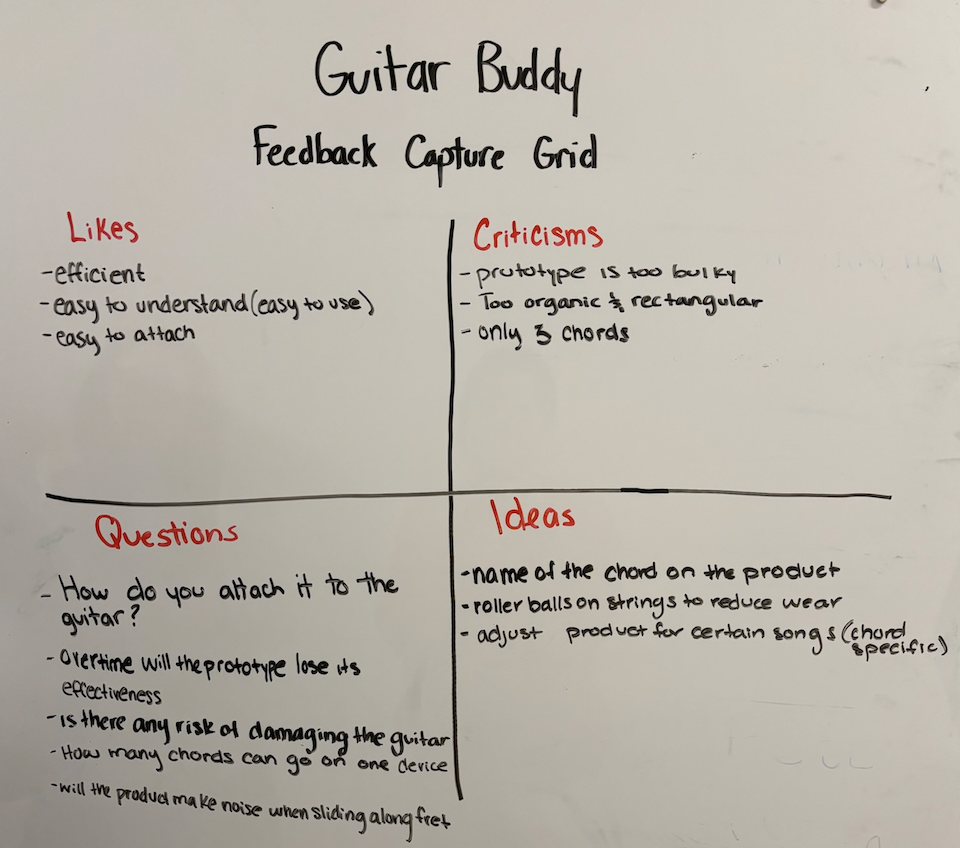 Guitar Buddy
Feedback Capture Grid
Likes
-efficient
-easy to understand(easy to use)
-easy to attach
Criticisms
- prototype is too bulky
- Too organic & rectangular
- only 3 chords
Questions
- How do you attach it to the
guitar?
-Overtime will the prototype lose its
effectiveness
-is there any risk of damaging the guitar
-How many chords can go on one device
-will the product make noise when sliding along fret
Ideas
-name of the chord on the product
-roller balls on strings to reduce wear
- adjust product for certain songs (chord
specific)